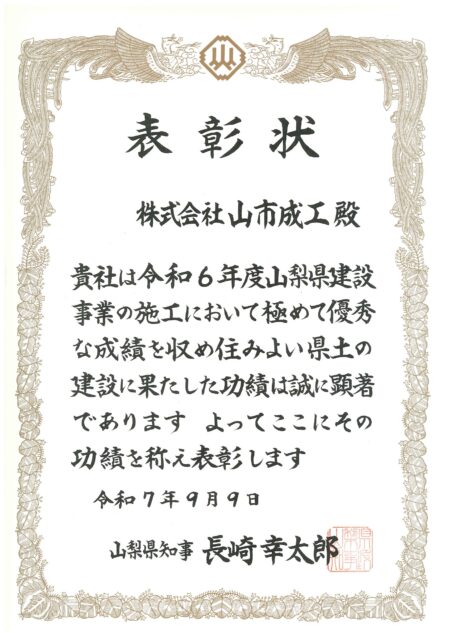 表彰状
株式会社山市成工殿
貴社は令和6年度山梨県建設
事業の施工において極めて優秀
な成績を収め住みよい県土の
建設に果たした功績は誠に顕著
であります よってここにその
功績を称え表彰します
令和7年9月9日
山梨県知事 長崎幸太郎